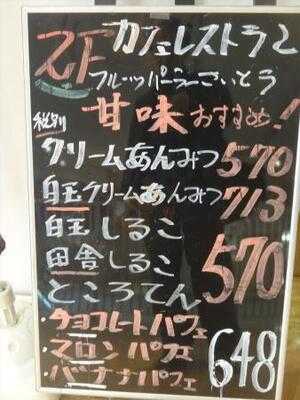 2F カフェレストラン
フルーツパーラーさいとう
税別 甘味おすすめ!
クリームあんみつ 570
白玉クリームあんみつ 713
白玉しるこ
田舎しるこ 570
ところてん
・チョコレートパフェ
・マロンパフェ 648
・バナナパフェ